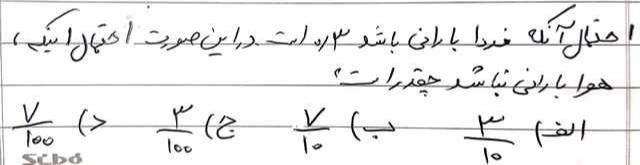 احتمال آنکه فردا بارانی باشد ۰/۳ است در این صورت احتمال اینکه،
هوا بارانی نباشد چقدر است؟
الف) ۳/۱۰ ب) ۷/۱۰ ج) ۳/۱۰۰ د) ۷/۱۰۰